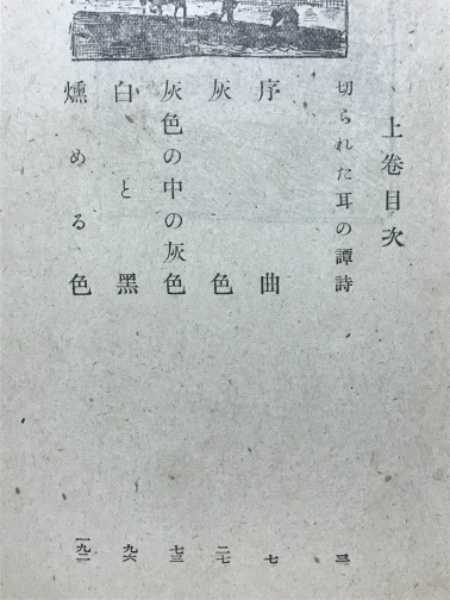 上卷目次
切られた耳の譚詩 三
序曲 七
灰色 二七
灰色の中の灰色 七三
白と黑 九六
燻める色 一九二